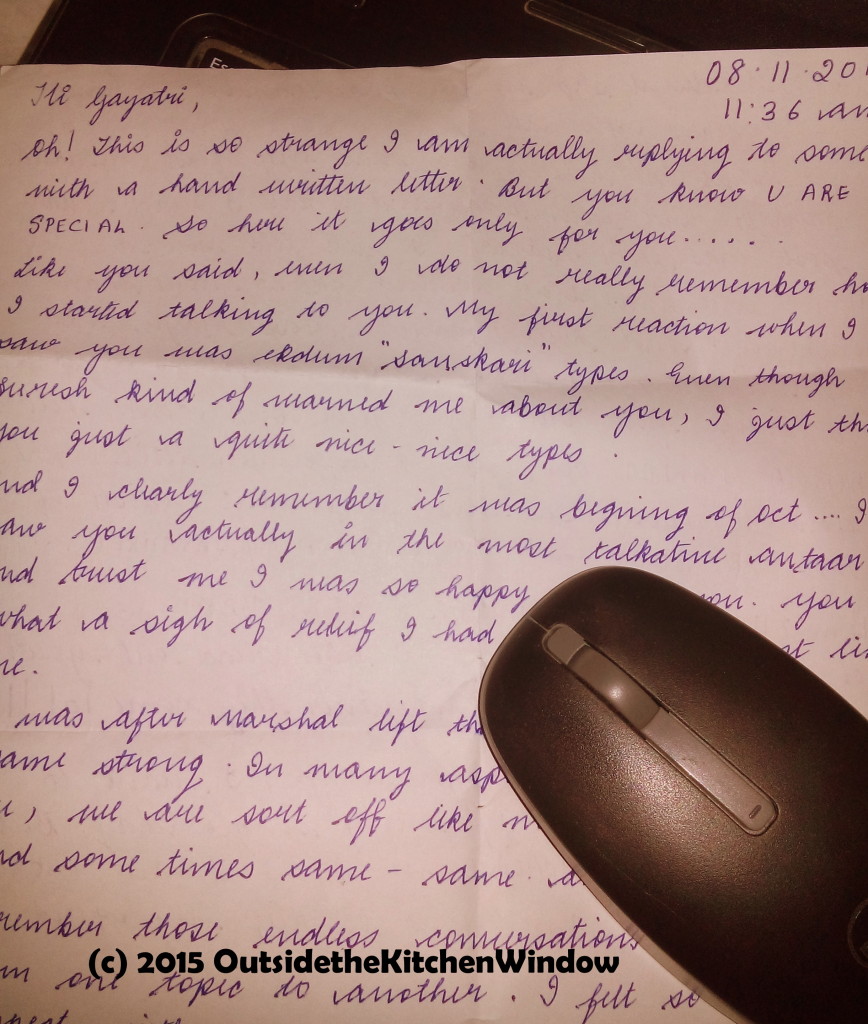 08.11.20
11:36 am
Hi Gayatri,
Oh! This is so strange I am actually replying to some
with a hand written letter. But you know U ARE
SPECIAL. So here it goes only for you......
Like you said, even I do not really remember ho
I started talking to you. My first reaction when I
saw you was ekdum "sanskari" types. Even though
suresh kind of warned me about you, I just th
you just a quite nice-nice types.
nd I clearly remember it was begning of oct .... I
aw you actually in the most talkative avtaar
nd trust me I was so happy ou. you
what a sigh of relief I had st lis
re.
was after marshal lift th
ame strong. In many asp
u, we are sort off like m
nd some times same - same. a
member those endless conversations
(c) 2015 OutsidetheKitchenWindow
m one topic to another. I felt so